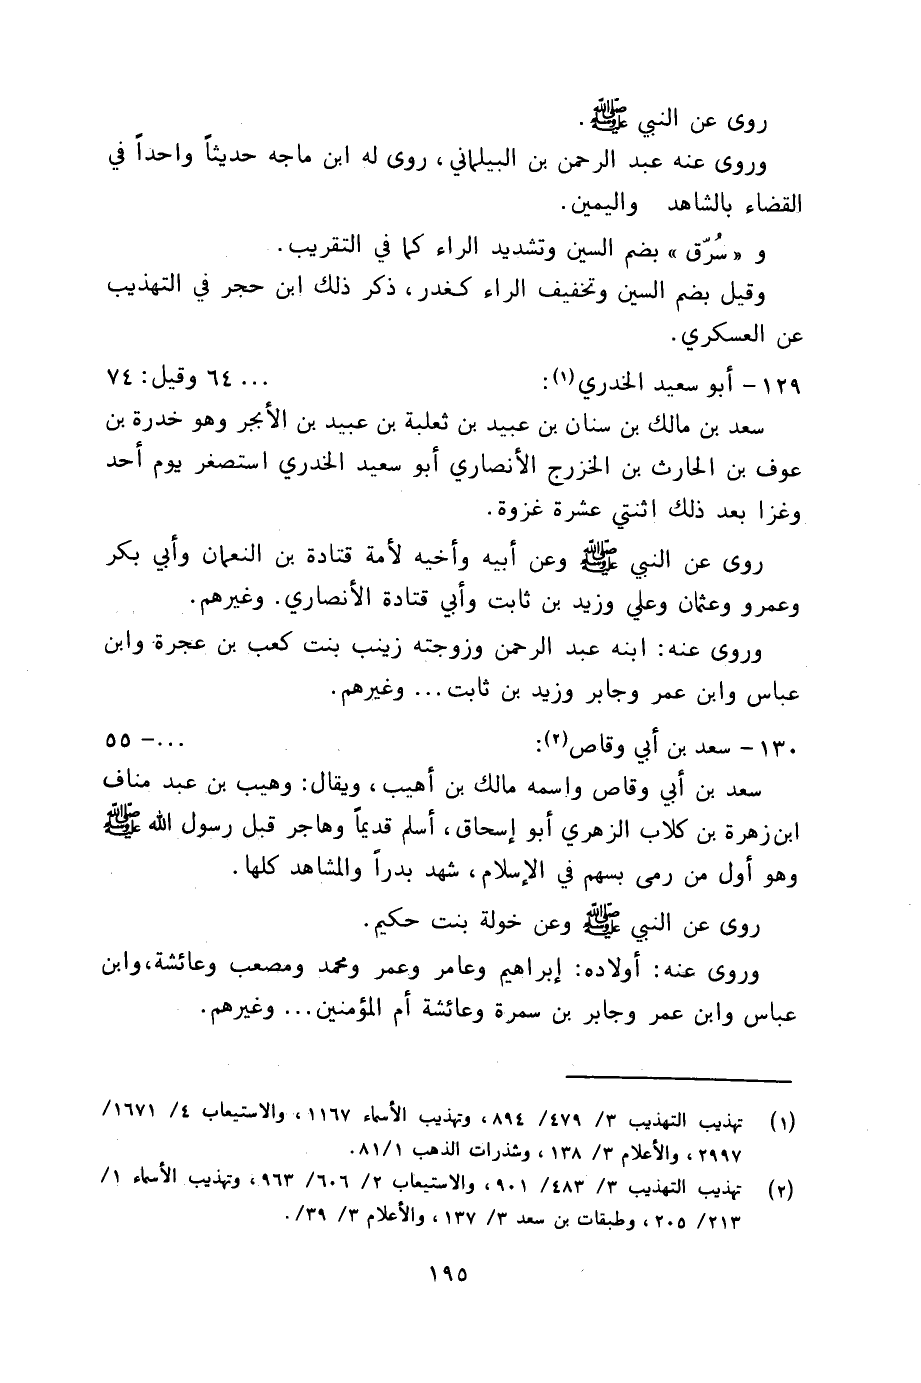 روى عن النبي ﷺ.
وروى عنه عبد الرحمن بن البيلماني، روى له ابن ماجه حديثاً واحداً في
القضاء بالشاهد واليمين.
و «سُرّق» بضم السين وتشديد الراء كما في التقريب.
وقيل بضم السين وتخفيف الراء كغدر، ذكر ذلك ابن حجر في التهذيب
عن العسكري.
١٢٩ - أبو سعيد الخدري(١): ... ٦٤ وقيل: ٧٤
سعد بن مالك بن سنان بن عبيد بن ثعلبة بن عبيد بن الأبجر وهو خدرة بن
عوف بن الحارث بن الخزرج الأنصاري أبو سعيد الخدري استصغر يوم أحد
وغزا بعد ذلك اثنتي عشرة غزوة.
روى عن النبي ﷺ وعن أبيه وأخيه لأمة قتادة بن النعمان وأبي بكر
وعمرو وعثمان وعلي وزيد بن ثابت وأبي قتادة الأنصاري. وغيرهم.
وروى عنه: ابنه عبد الرحمن وزوجته زينب بنت كعب بن عجرة وابن
عباس وابن عمر وجابر وزيد بن ثابت... وغيرهم.
١٣٠ - سعد بن أبي وقاص(٢): ...- ٥٥
سعد بن أبي وقاص واسمه مالك بن أهيب، ويقال: وهيب بن عبد مناف
ابن زهرة بن كلاب الزهري أبو إسحاق، أسلم قديماً وهاجر قبل رسول الله ﷺ
وهو أول من رمى بسهم في الإسلام، شهد بدراً والمشاهد كلها.
روى عن النبي ﷺ وعن خولة بنت حكيم.
وروى عنه: أولاده: إبراهيم وعامر وعمر ومحمد ومصعب وعائشة، وابن
عباس وابن عمر وجابر بن سمرة وعائشة أم المؤمنين... وغيرهم.
(١) تهذيب التهذيب ٣/ ٤٧٩/ ٨٩٤، وتهذيب الأسماء ١١٦٧، والاستيعاب ٤/ ١٦٧١/
٢٩٩٧، والأعلام ٣/ ١٣٨، وشذرات الذهب ٨١/١.
(٢) تهذيب التهذيب ٣/ ٤٨٣/ ٩٠١، والاستيعاب ٢/ ٦٠٦/ ٩٦٣، وتهذيب الأسماء ١/
٢١٣/ ٢٠٥، وطبقات بن سعد ٣/ ١٣٧، والأعلام ٣/ ٣٩/.
١٩٥